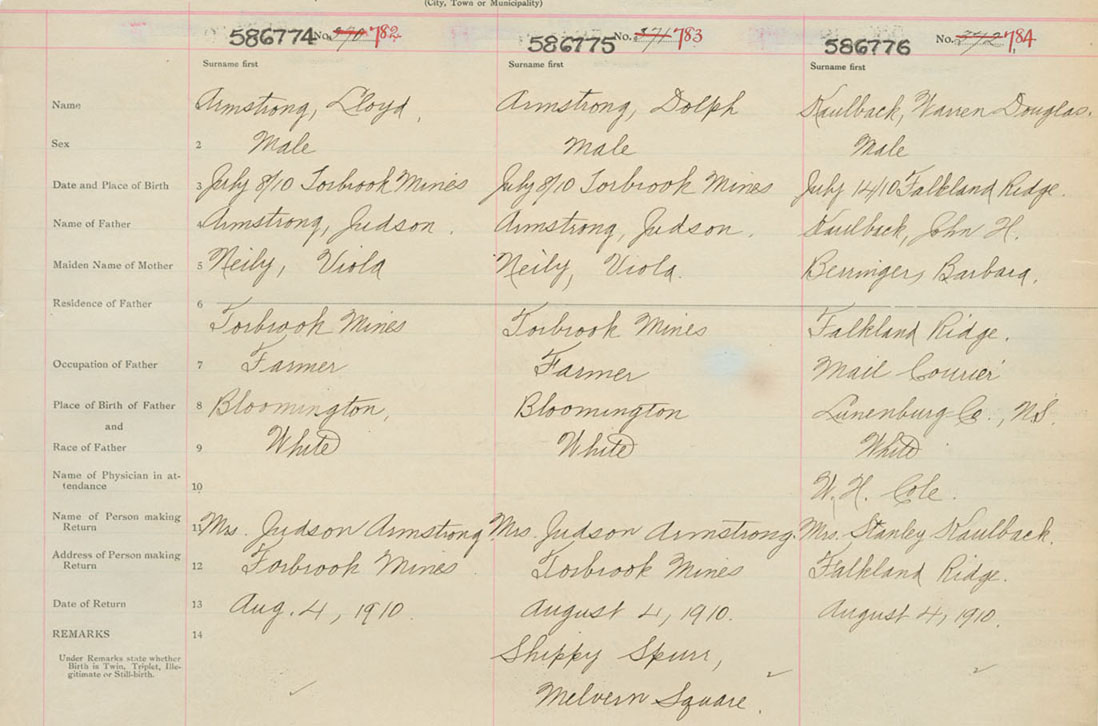 (City, Town or Municipality)
586774 No. 370 782 586775 No. 371 783 586776 No. 372 784
Surname first Surname first Surname first
Name 1 Armstrong, Lloyd, Armstrong, Dolph Kaulback, Warren Douglas.
Sex 2 Male Male Male
Date and Place of Birth 3 July 8/10 Torbrook Mines July 8/10 Torbrook Mines July 14/10 Falkland Ridge.
Name of Father 4 Armstrong, Judson. Armstrong, Judson. Kaulback, John H.
Maiden Name of Mother 5 Neily, Viola Neily, Viola. Berringer, Barbara.
Residence of Father 6
Torbrook Mines Torbrook Mines Falkland Ridge.
Occupation of Father 7 Farmer Farmer Mail Courier
Place of Birth of Father 8 Bloomington, Bloomington Lunenburg Co., NS.
and
Race of Father 9 White White White
Name of Physician in at-
tendance 10 W. H. Cole.
Name of Person making
Return 11 Mrs. Judson Armstrong Mrs. Judson Armstrong. Mrs. Stanley Kaulback.
Address of Person making
Return 12 Torbrook Mines Torbrook Mines Falkland Ridge.
Date of Return 13 Aug. 4, 1910. August 4, 1910. August 4, 1910.
REMARKS 14
Under Remarks state whether
Birth is Twin, Triplet, Ille-
gitimate or Still-birth.
Shippy Spurr,
Melvern Square.